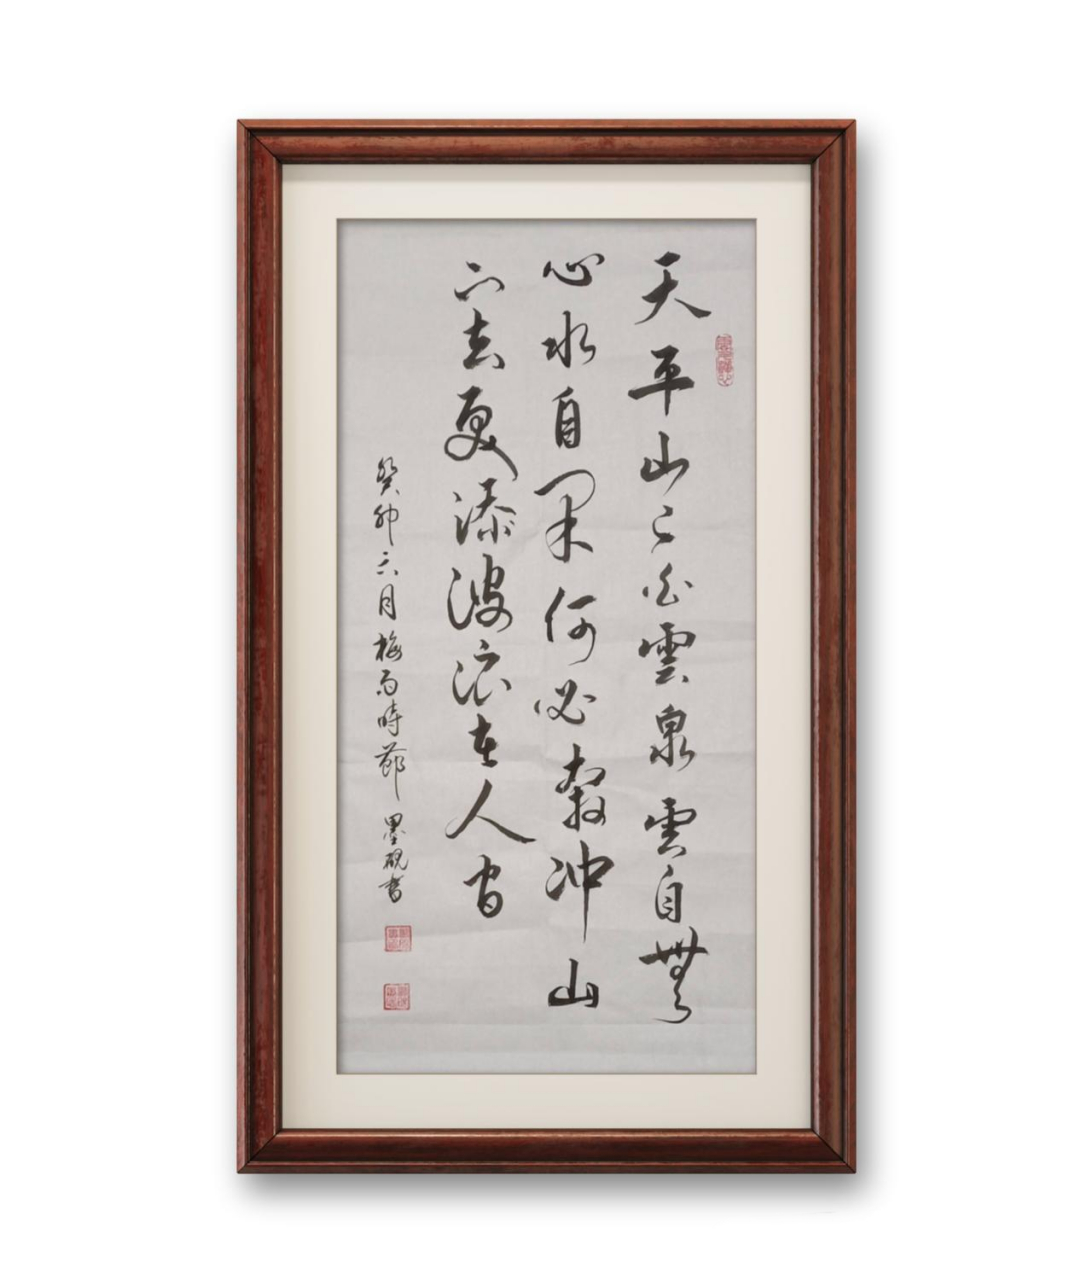 天平山上白雲泉雲自無
心水自閑何必奔冲山
下去更添波浪在人间
癸卯六月梅雨時節 墨砚書